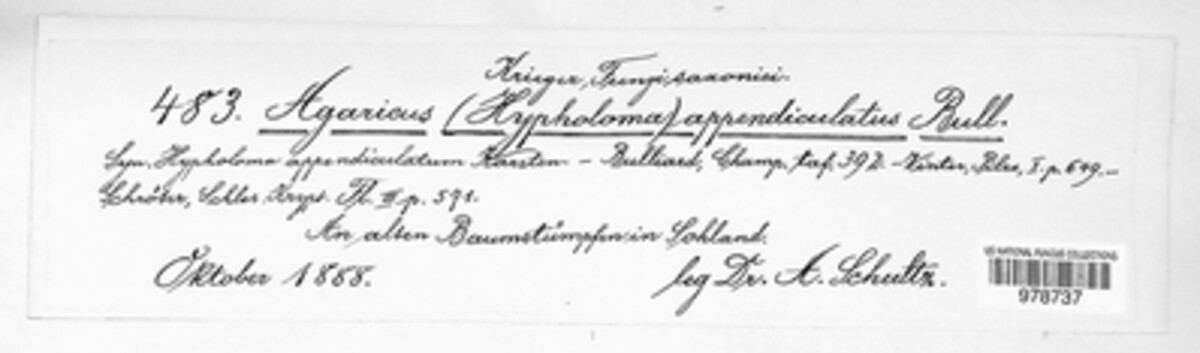 Krieger, Fungi saxonici.
483. Agaricus (Hypholoma) appendiculatus Bull.
Syn. Hypholoma appendiculatum Karsten – Bulliard, Champ, taf. 392. – Winter, Pilze, I. p. 649. –
Schröter, Schles. Kryp. Fl. III p. 571.
An alten Baumstümpfen in Sohland.
Oktober 1888.
leg Dr. A. Schultz.
US NATIONAL FUNGUS COLLECTIONS
978737